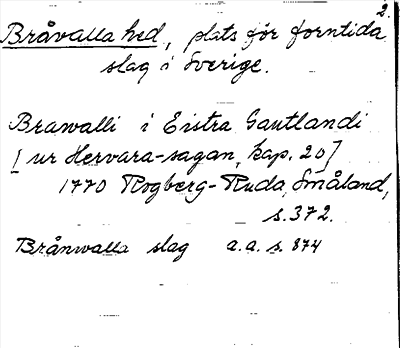 2.
Bråvalla hed, plats för forntida
slag i Sverige.
Brawalli i Eistra Gautlandi
[ur Hervara-sagan, kap. 20]
1770 Rogberg-Ruda, Småland,
s. 372.
Brånwalla slag a.a. s. 874